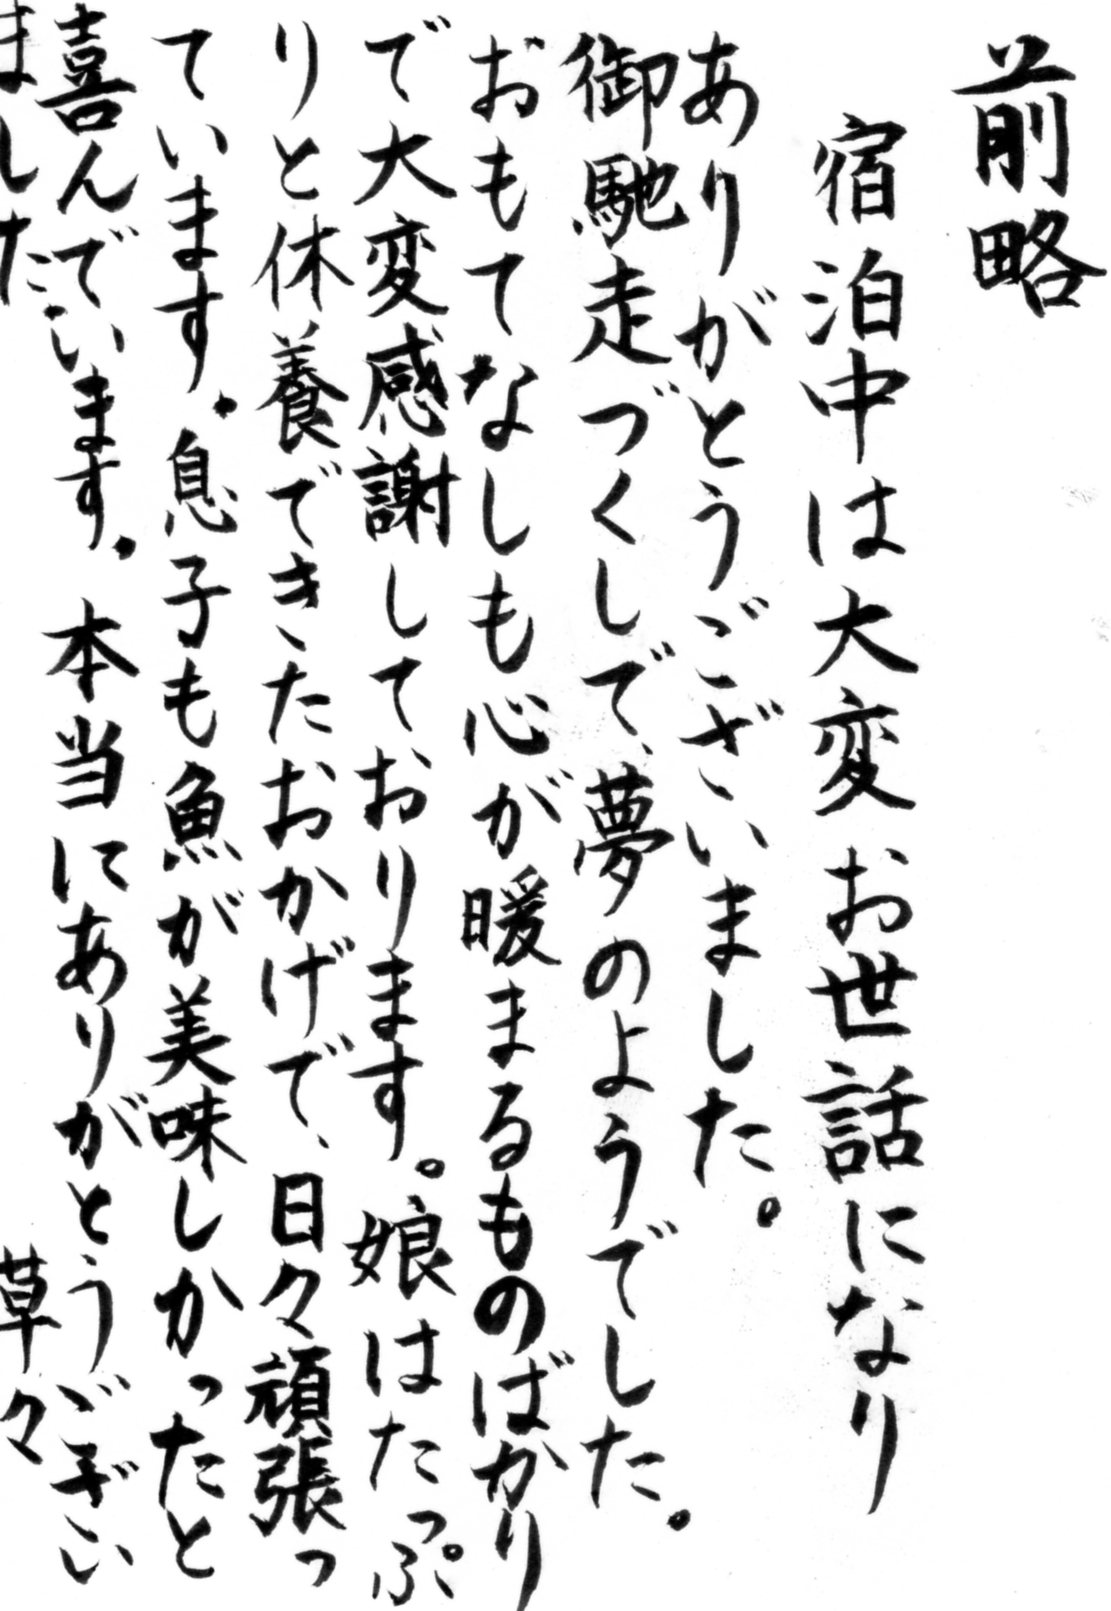 前略
宿泊中は大変お世話になり
ありがとうございました。
御馳走づくしで、夢のようでした。
おもてなしも心が暖まるものばかり
で大変感謝しております。娘はたっぷ
りと休養できたおかげで、日々頑張っ
ています。息子も魚が美味しかったと
喜んでいます。本当にありがとうござい
ました
草々